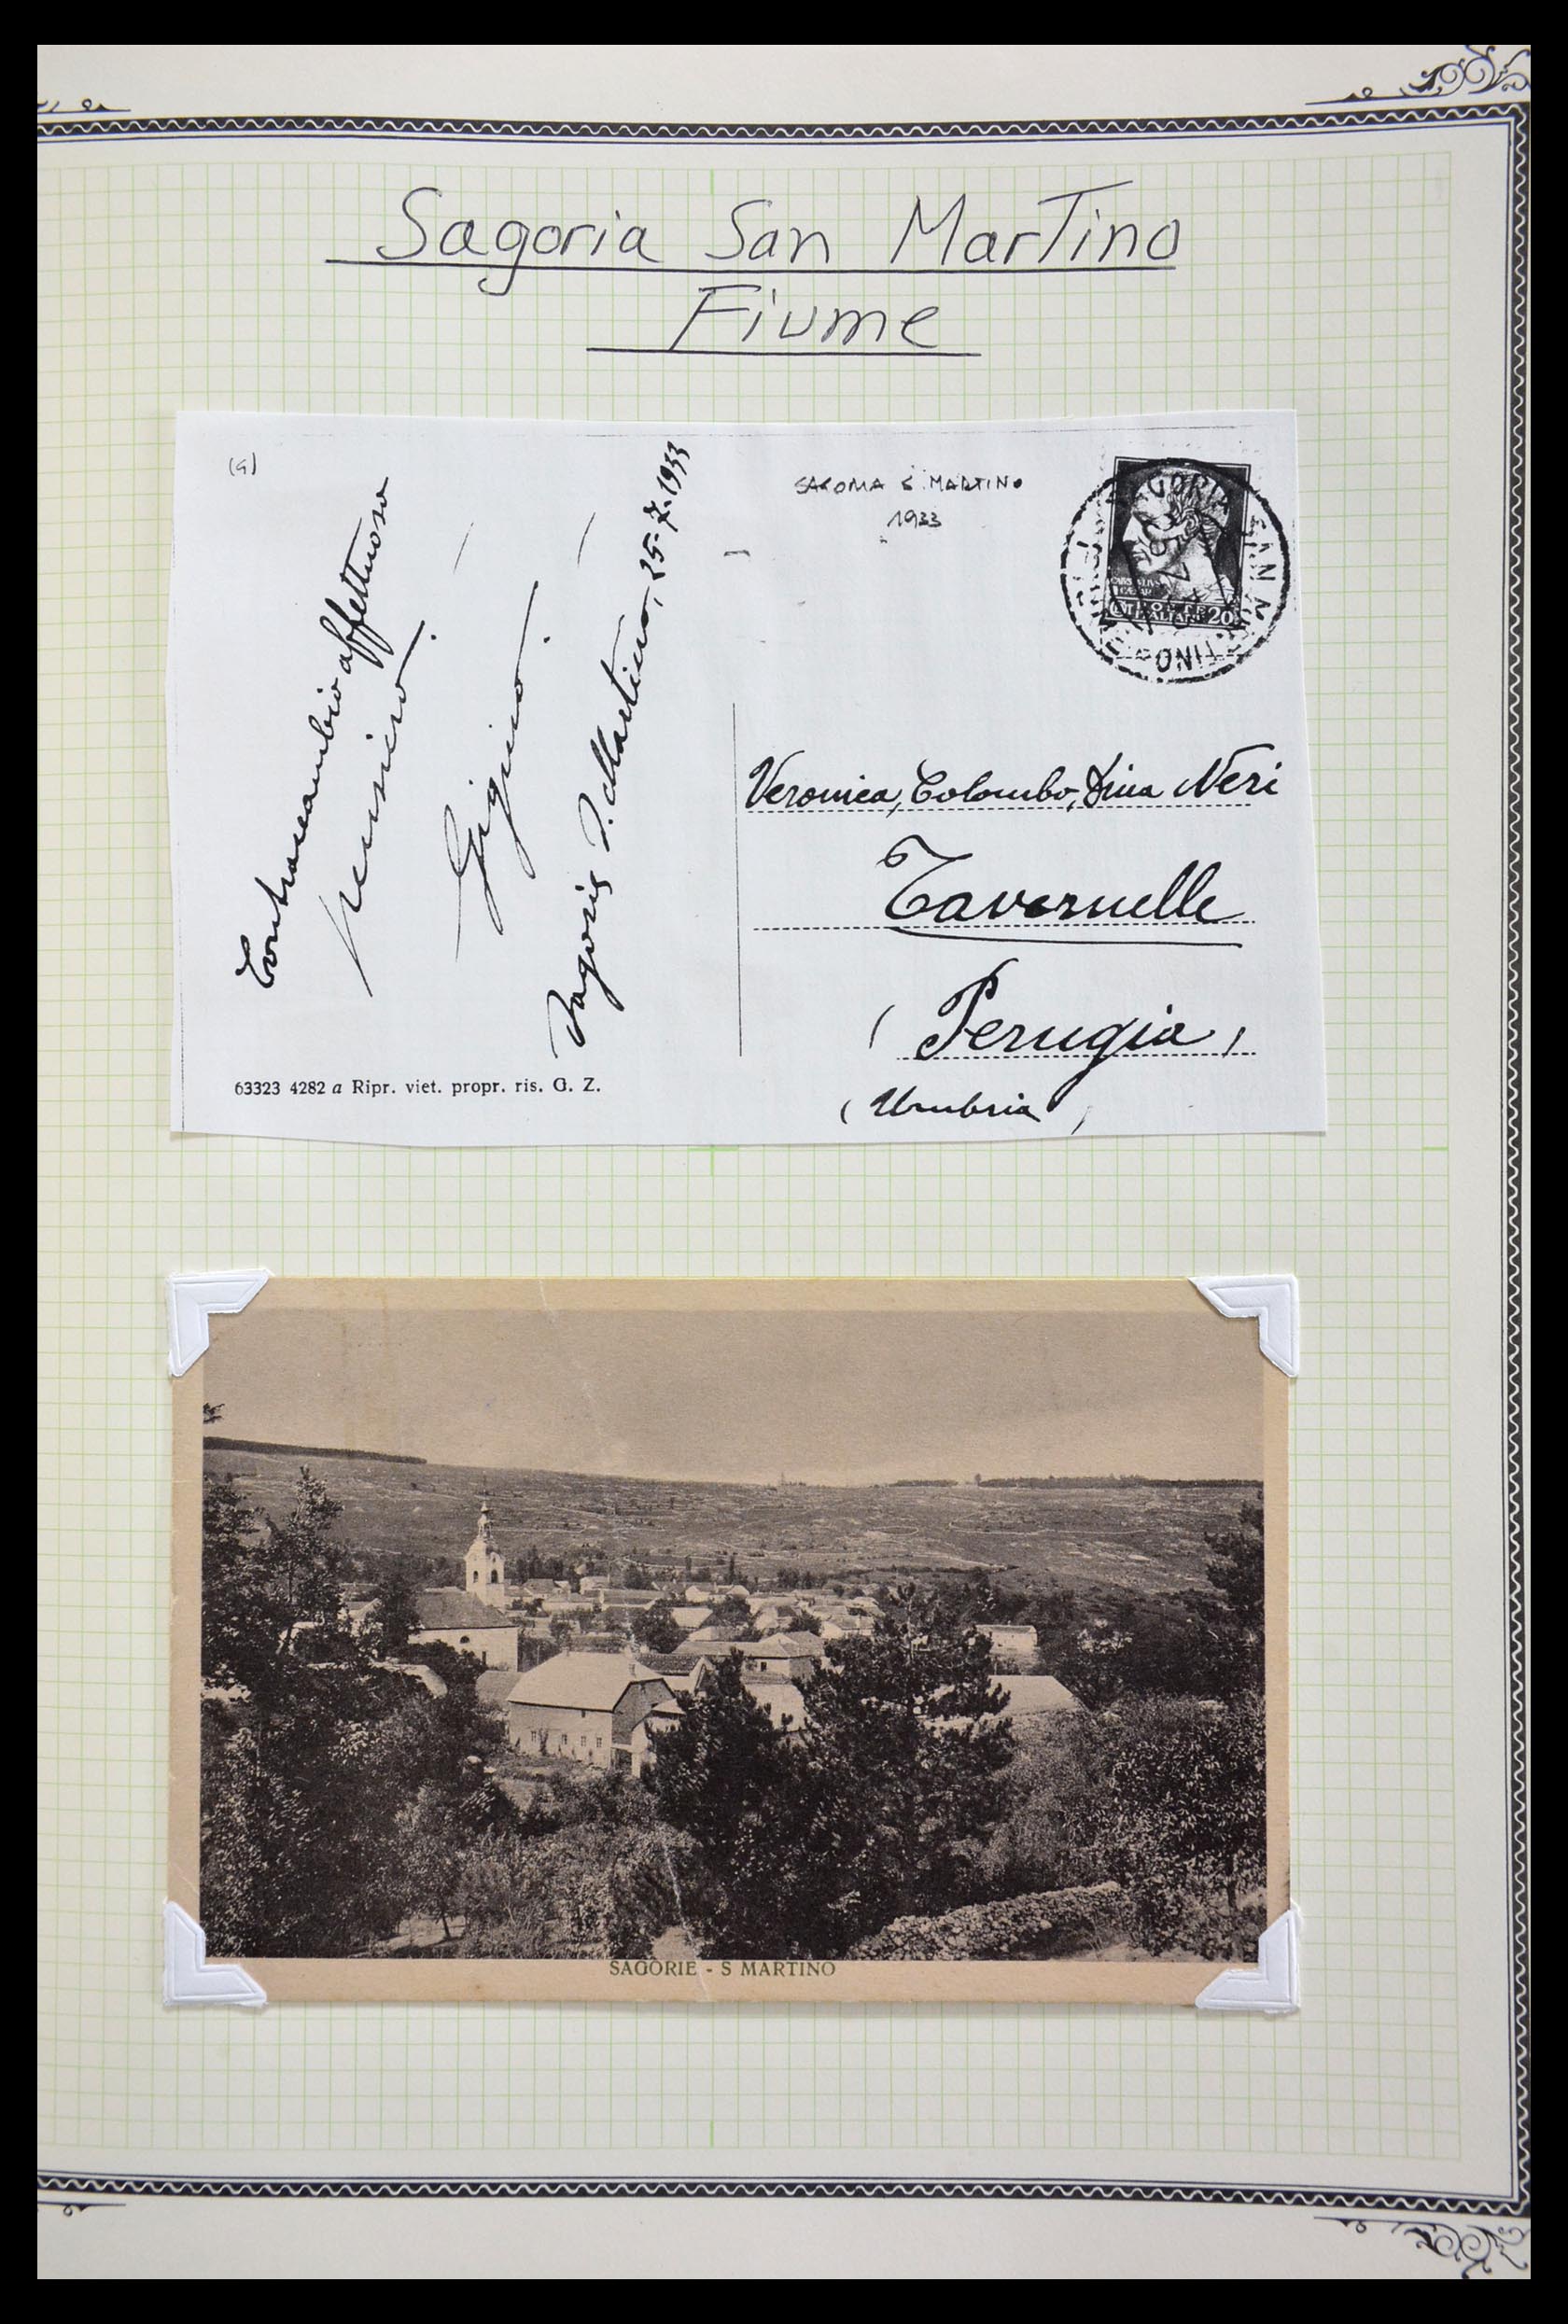 Sagoria San Martino
Fiume
(G)
SAGORIA S. MARTINO
1933
Contraccambio affettuoso
pensiero.
Gigino.
Sagoria S. Martino, 25-7-1933
SAGORIA SAN MARTINO
POSTE
ITALIANE
CT 20
Veronica, Colombo, Dina Neri
Tavernelle
(Perugia)
(Umbria)
63323 4282 a Ripr. viet. propr. ris. G. Z.
SAGORIE - S MARTINO